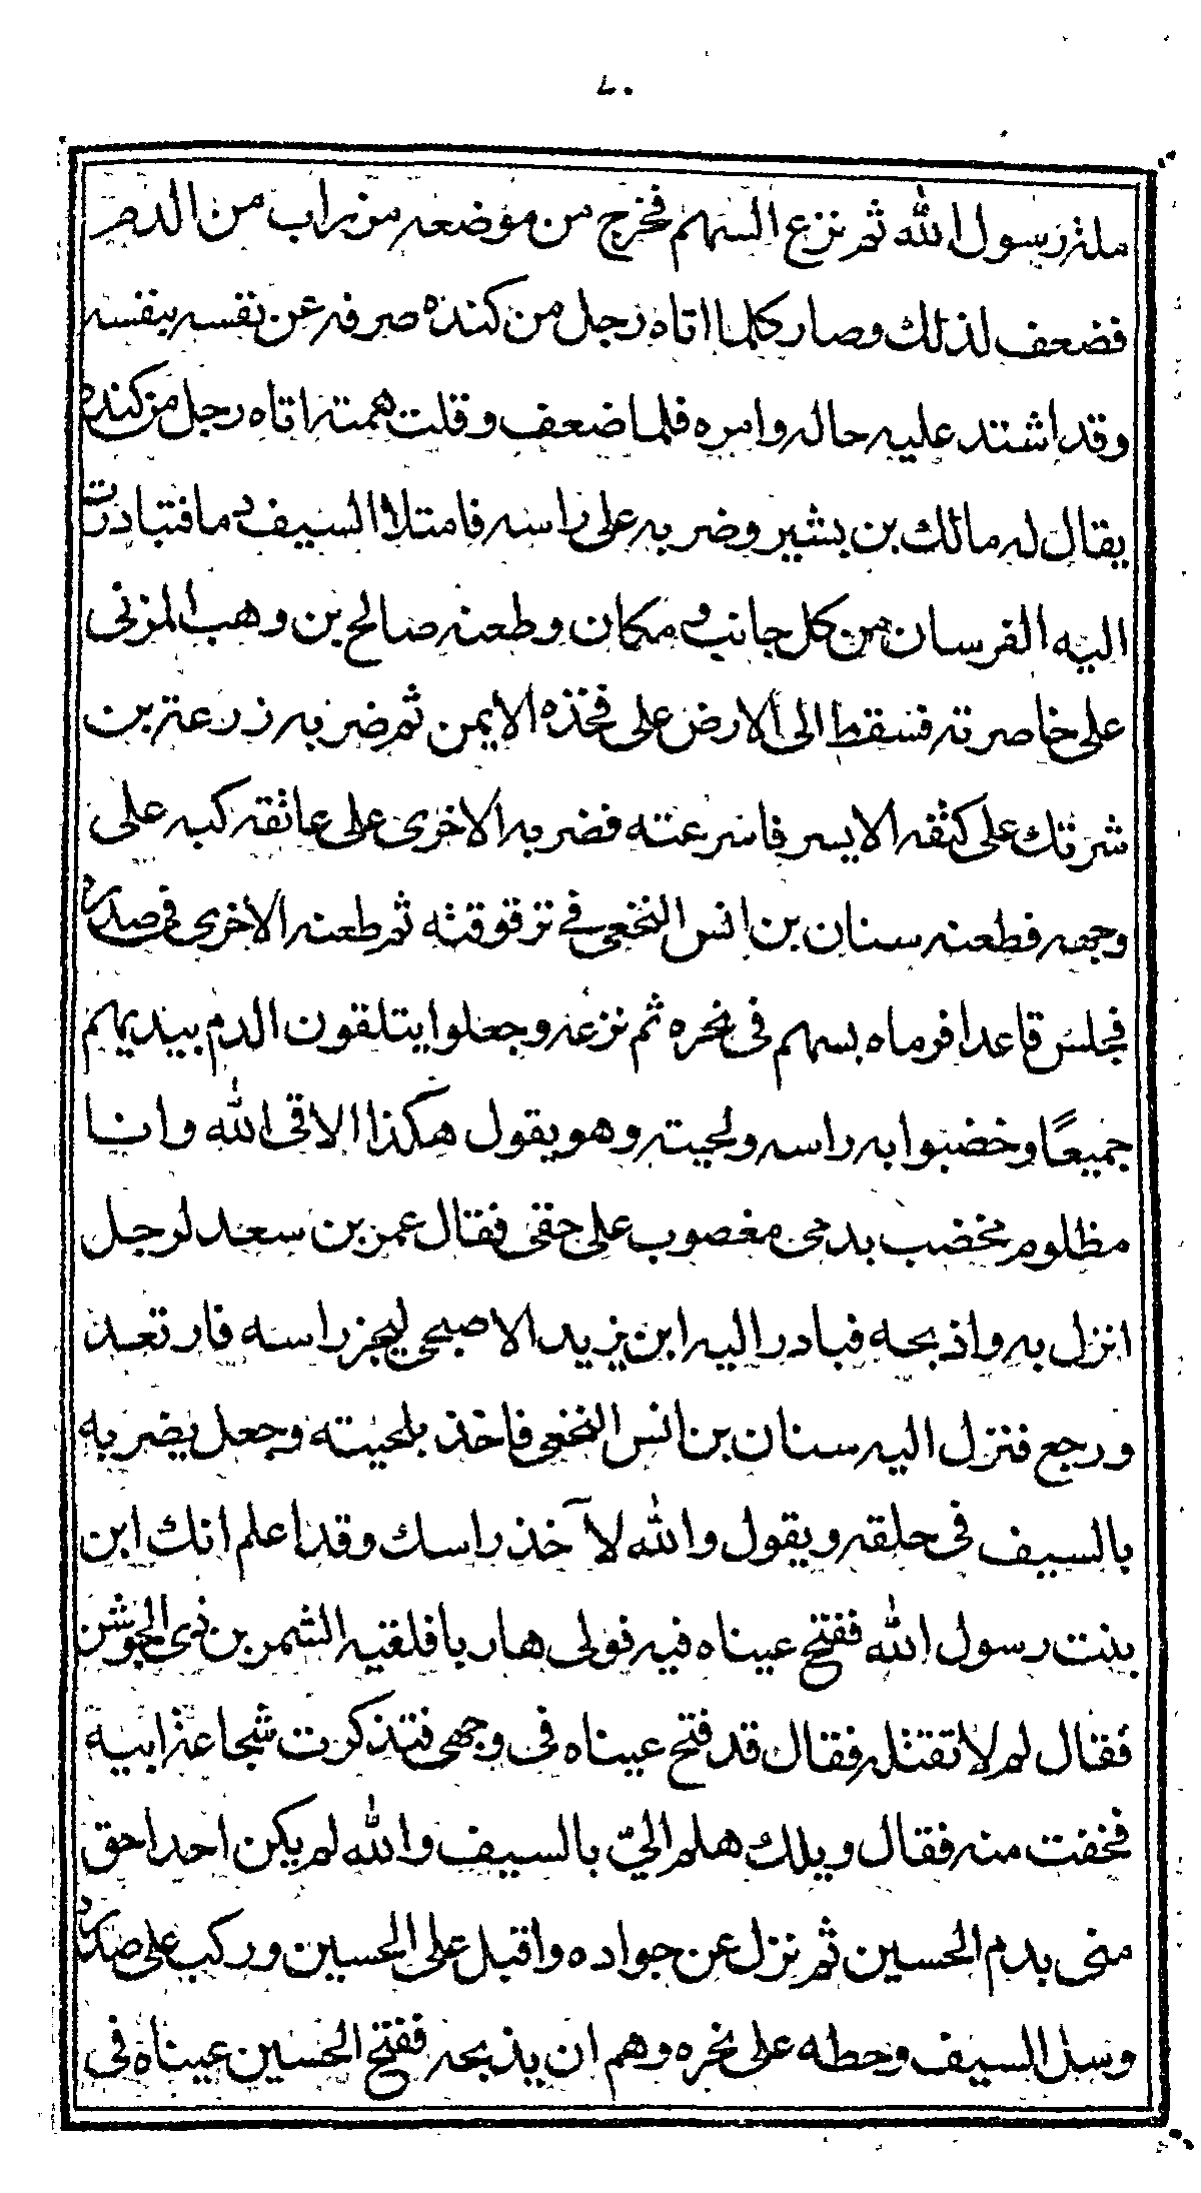 ٧٠
ملة رسول الله ثم نزع السهم فخرج من موضعه ميزاب من الدم
فضعف لذلك وصار كلما اتاه رجل من كنده صرفه عن نفسه بنفسه
وقد اشتد عليه حاله وامره فلما ضعف وقلت همته اتاه رجل من كنده
يقال له مالك بن بشير وضربه على راسه فامتلا السيف دما فتبادرت
اليه الفرسان من كل جانب و مكان وطعنه صالح بن وهب المزنى
على خاصرته فسقط الى الارض على فخذه الايمن ثم ضربه زرعة بن
شرتك على كتفه الايسر فاسرعته فضربه الاخرى على عاتقه كبه على
وجهه فطعنه سنان بن انس النخعى فى ترقوقته ثم طعنه الاخرى فى صدره
فجلس قاعدا فرماه بسهم فى نحره ثم نزعه وجعلوا يتلقون الدم بيديهم
جميعًا وخضبوا به راسه ولحيته وهو يقول هكذا الاقى الله وانا
مظلوم مخضب بدمى مغصوب على حقى فقال عمر بن سعد لرجل
انزل به واذبحه فبادر اليه ابن يزيد الاصبحى ليجز راسه فارتعد
ورجع فنزل اليه سنان بن انس النخعى فاخذ بلحيته وجعل يضربه
بالسيف فى حلقه ويقول والله لآخذ راسك وقد اعلم انك ابن
بنت رسول الله ففتح عيناه فيه فولى هاربا فلقيه الشمر بن ذى الجوشن
فقال لم لا تقتله فقال قد فتح عيناه فى وجهى فتذكرت شجاعة ابيه
فخفت منه فقال ويلك هلم الىّ بالسيف والله لم يكن احد احق
منى بدم الحسين ثم نزل عن جواده واقبل على الحسين وركب على صدره
وسل السيف وحطه على نحره وهم ان يذبحه ففتح الحسين عيناه فى